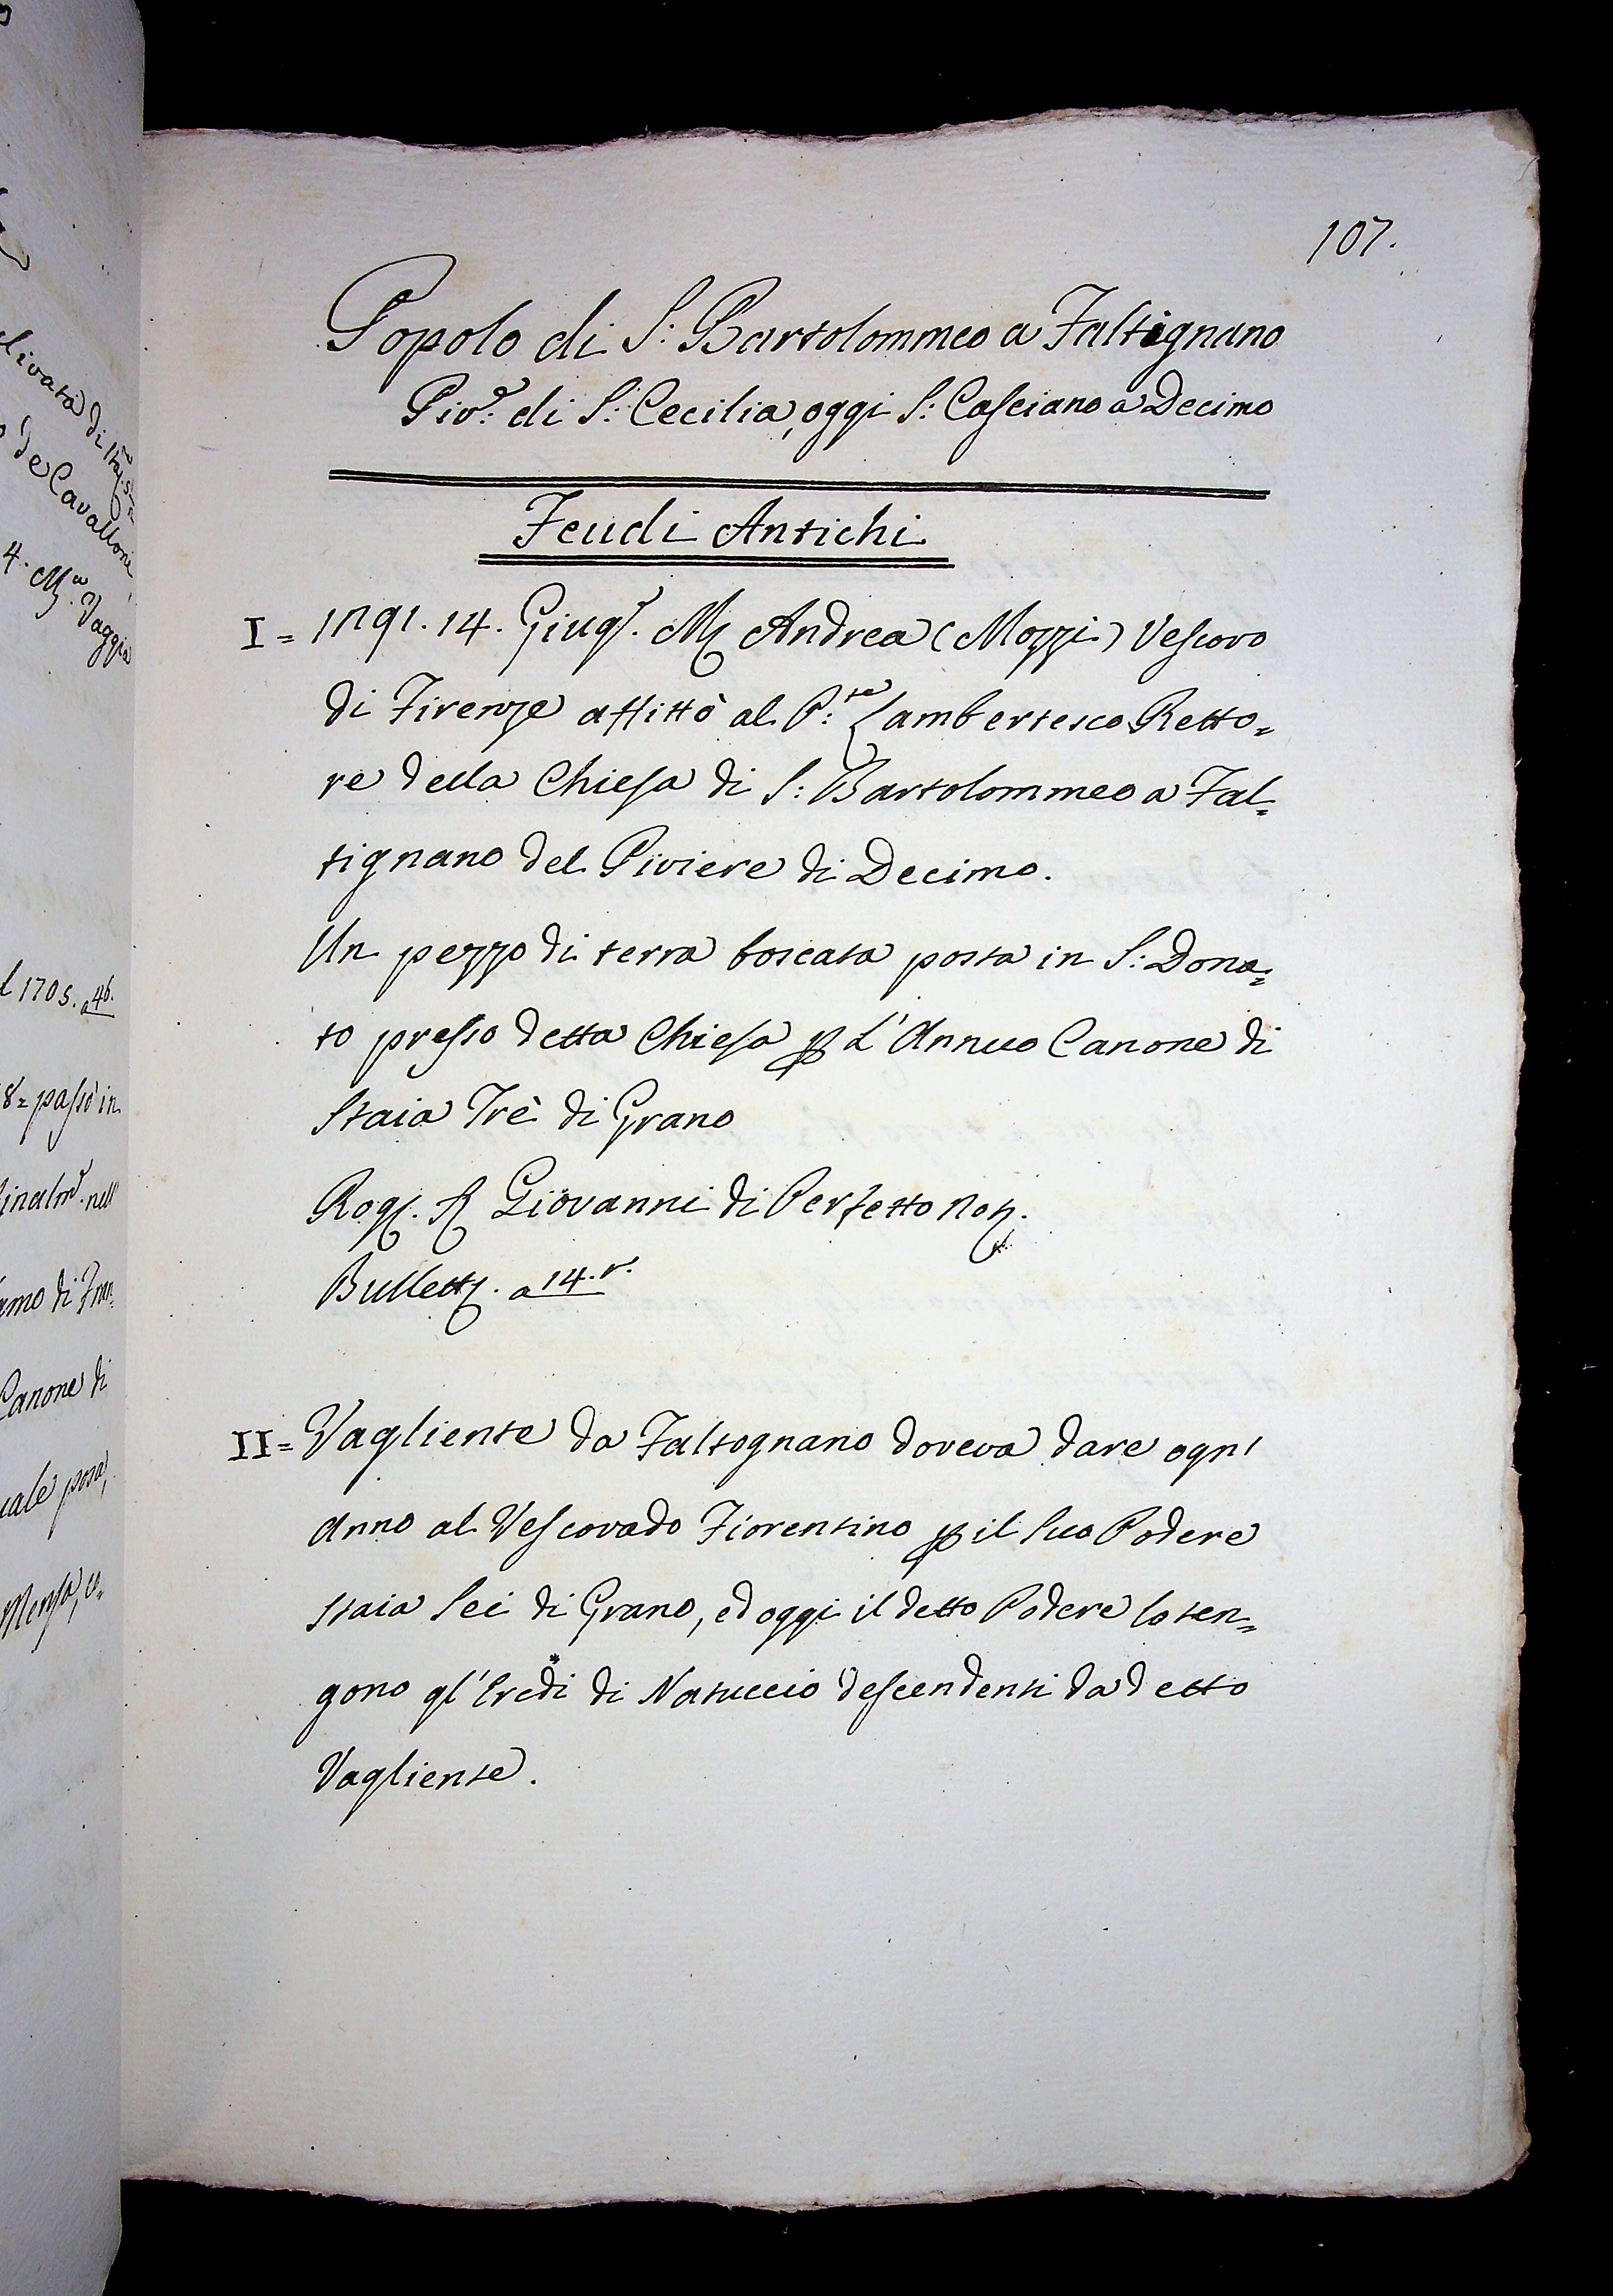 livata di
de Cavallone
4. M.ª Vaggia
l 1705. a 46.
8 = passò in
nell
amo di Fran=
Canone di
uale
Mensa, e
107.
Popolo di S: Bartolommeo a Faltignano
Piv.e: di S: Cecilia, oggi S: Casciano a Decimo
Feudi Antichi
I = 1291. 14. Giug.º M. Andrea (Mozzi) Vescovo
di Firenze affittò al P:te Lambertesco Retto=
re della Chiesa di S: Bartolommeo a Fal=
tignano del Piviere di Decimo.
Un pezzo di terra boscata posta in S: Dona=
to presso detta Chiesa p L'Annuo Canone di
Staia Trè di Grano
Rog. S. Giovanni di Perfetto Not.
Bullett. a 14. r.
II = Vagliente da Faltognano doveva dare ogn'
Anno al Vescovado Fiorentino p il suo Podere
staia sei di Grano, ed oggi il detto Podere lo ten=
gono gl'Eredi di Natuccio descendenti da detto
Vagliente.